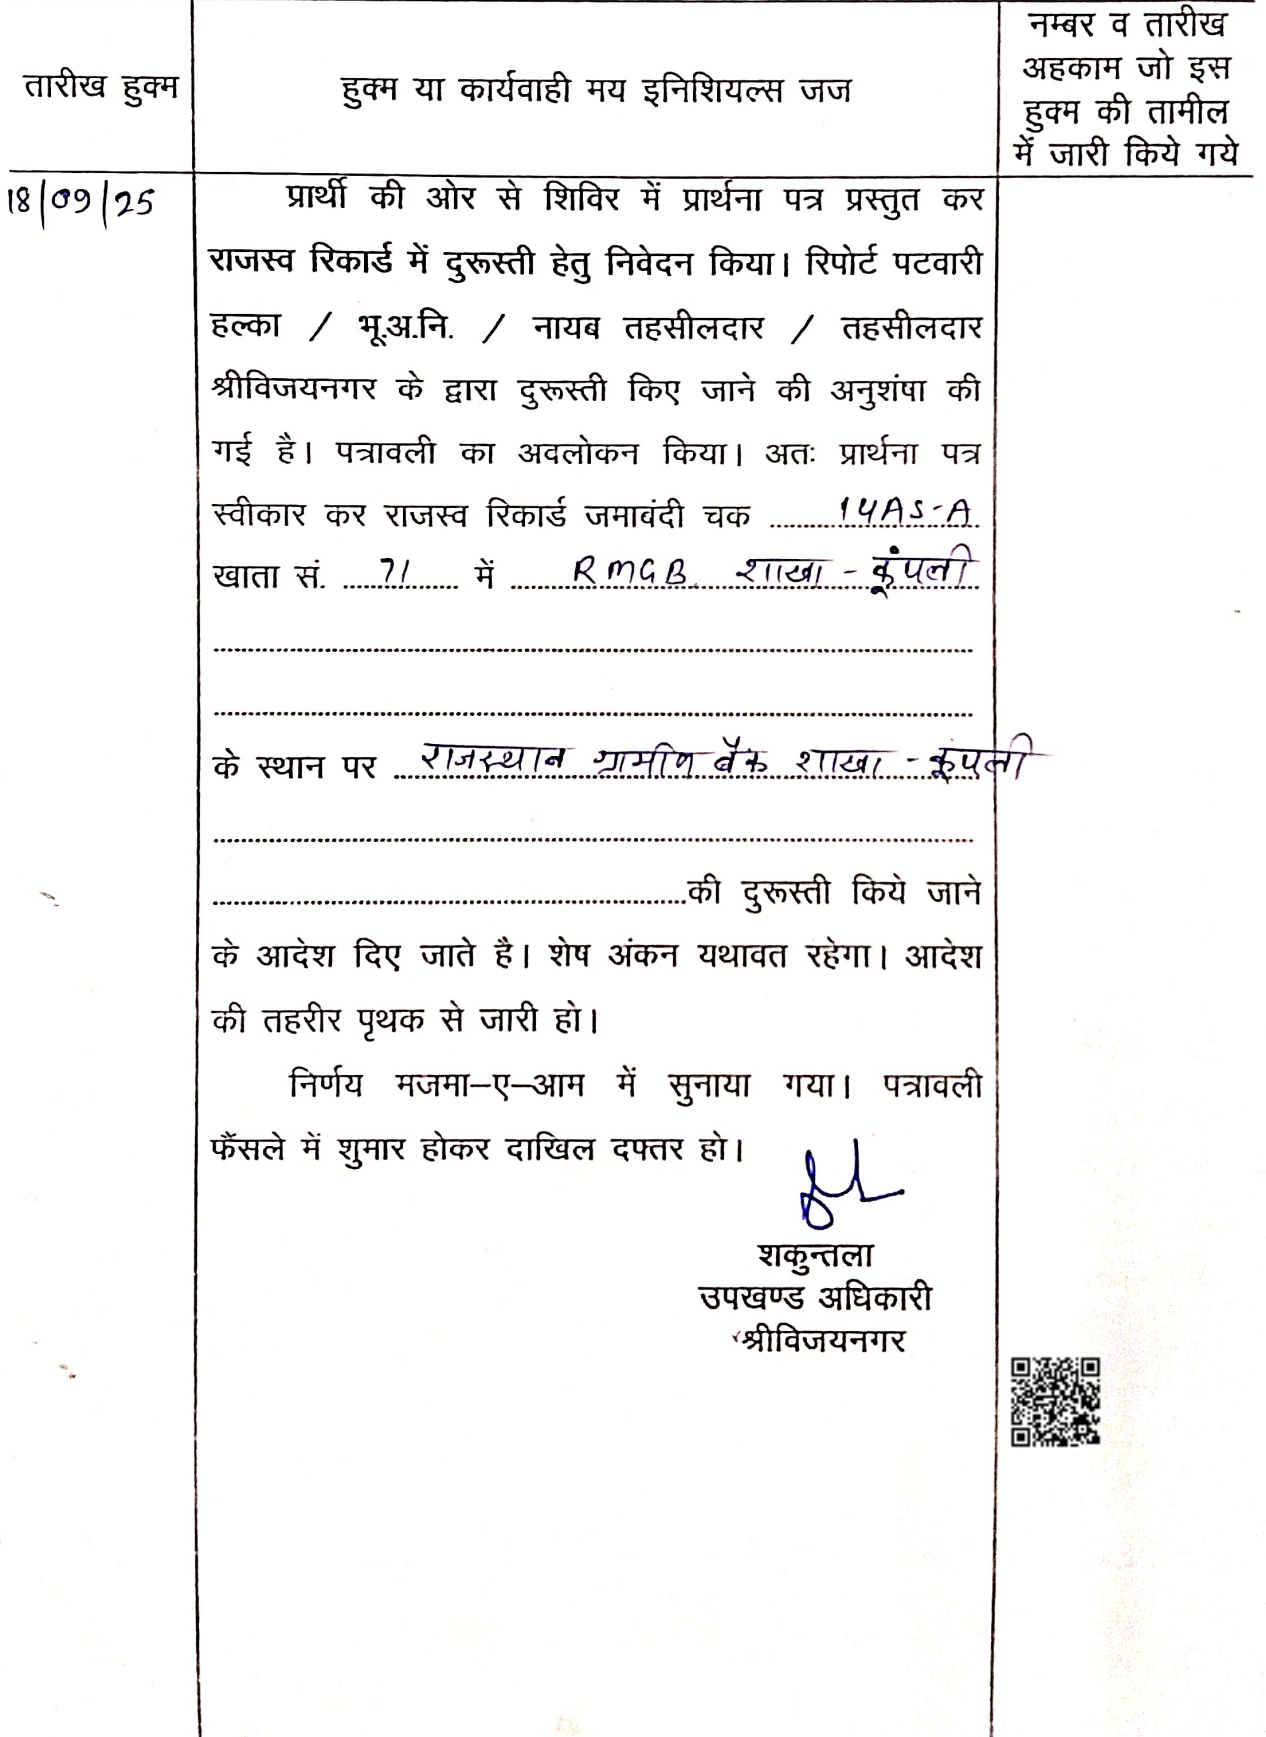 तारीख हुक्म
हुक्म या कार्यवाही मय इनिशियल्स जज
नम्बर व तारीख
अहकाम जो इस
हुक्म की तामील
में जारी किये गये
18/09/25
प्रार्थी की ओर से शिविर में प्रार्थना पत्र प्रस्तुत कर
राजस्व रिकार्ड में दुरूस्ती हेतु निवेदन किया। रिपोर्ट पटवारी
हल्का / भू.अ.नि. / नायब तहसीलदार / तहसीलदार
श्रीविजयनगर के द्वारा दुरूस्ती किए जाने की अनुशंषा की
गई है। पत्रावली का अवलोकन किया। अतः प्रार्थना पत्र
स्वीकार कर राजस्व रिकार्ड जमाबंदी चक ..........14AS-A
खाता सं. .....71....... में ........RMGB. शाखा - कूंपली
के स्थान पर ...राजस्थान ग्रामीण बैंक शाखा - कूपली
की दुरूस्ती किये जाने
के आदेश दिए जाते है। शेष अंकन यथावत रहेगा। आदेश
की तहरीर पृथक से जारी हो।
निर्णय मजमा–ए–आम में सुनाया गया। पत्रावली
फैंसले में शुमार होकर दाखिल दफ्तर हो।
शकुन्तला
उपखण्ड अधिकारी
श्रीविजयनगर